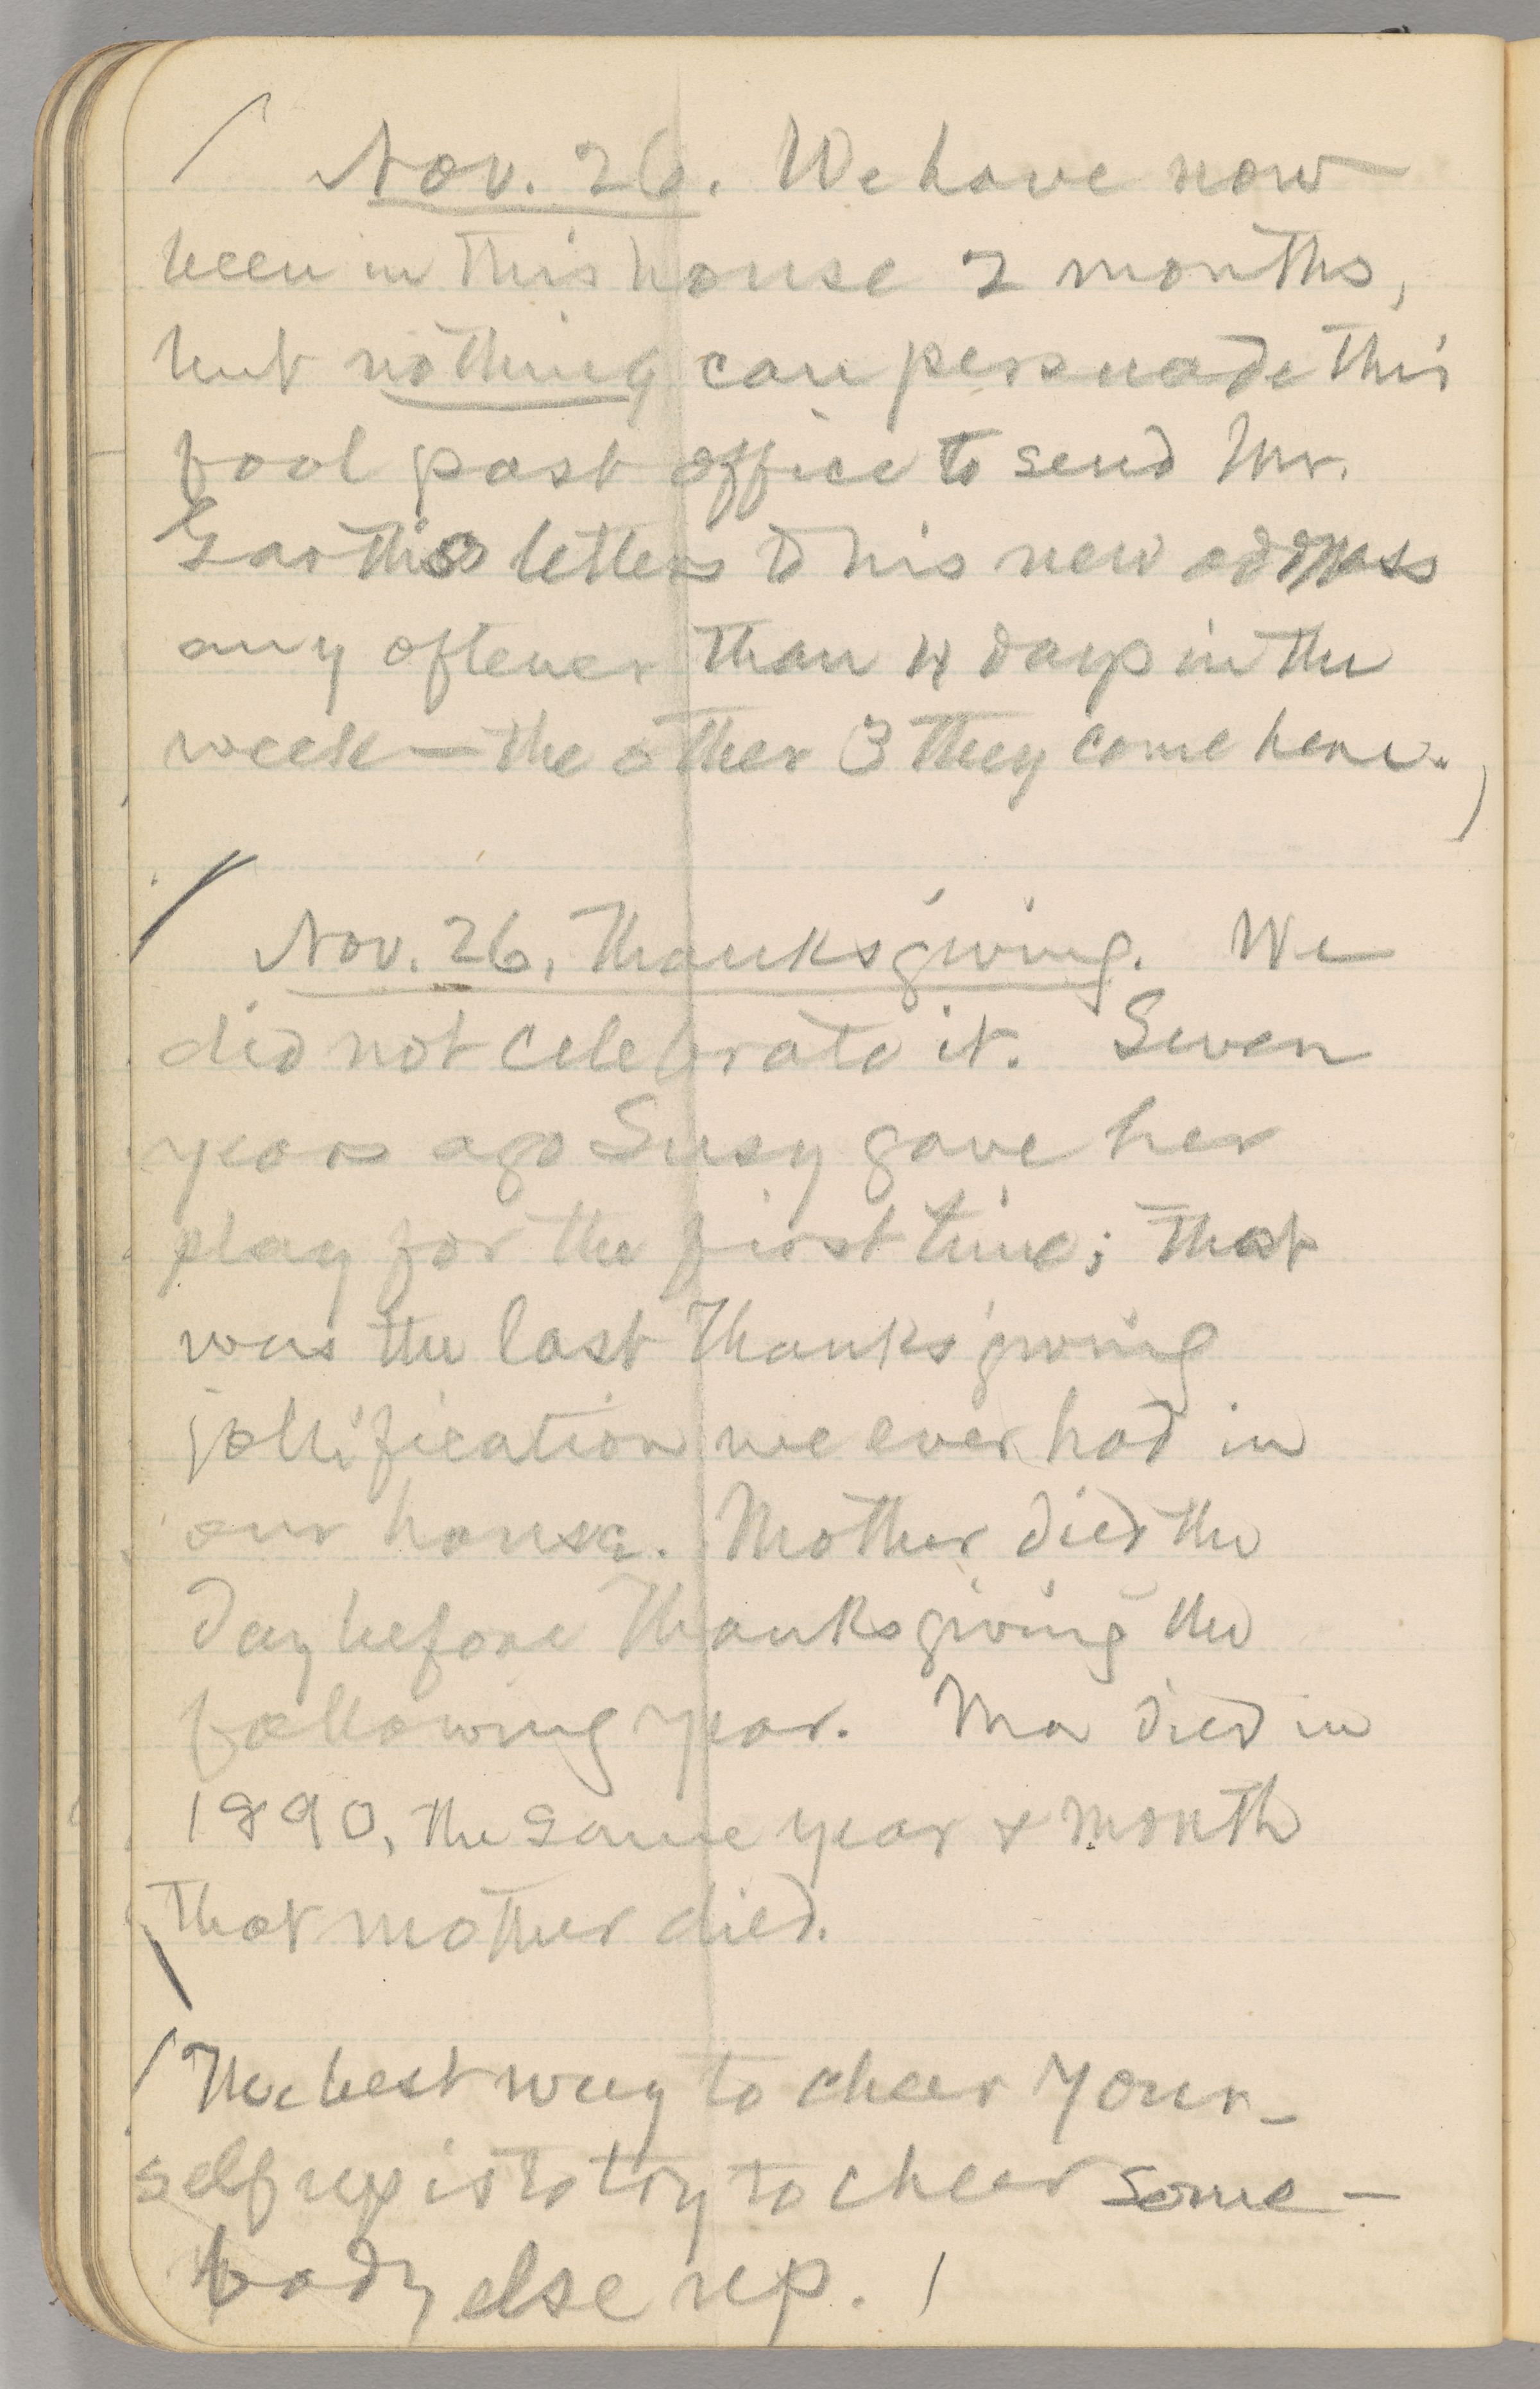 Nov. 26. We have now
been in this house 2 months,
but nothing can persuade this
fool post office to send Mr.
Garth's letters to his new address
any oftener than 4 days in the
week — the other 3 they come here.
Nov. 26, Thanksgiving. We
did not celebrate it. Seven
years ago Susy gave her
play for the first time; that
was the last Thanksgiving
jollification we ever had in
our house. Mother died the
day before Thanksgiving the
following year. Ma died in
1890, the same year & month
that mother died.
The best way to cheer your-
self up is to try to cheer some-
body else up.